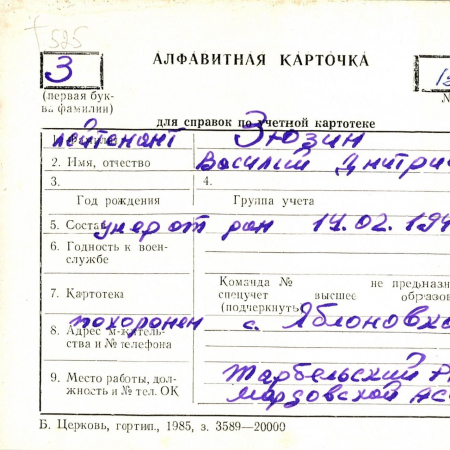 † 525
АЛФАВИТНАЯ КАРТОЧКА
З
(первая бук-
ва фамилии)
№
для справок по учетной картотеке
лейтенант Зюзин
2. Имя, отчество Василий Дмитри
3. 4.
Год рождения Группа учета
5. Соста умер от ран 14.02.194
6. Годность к воен-
службе
Команда № не предназн
7. Картотека спецучет высшее образов
(подчеркнуть)
похоронен с. Яблоновка
8. Адрес места житель-
ства и № телефона
9. Место работы, дол-
жность и № тел. ОК
Тарбельский Р
Мордовской АС
Б. Церковь, гортип., 1985, з. 3589—20000